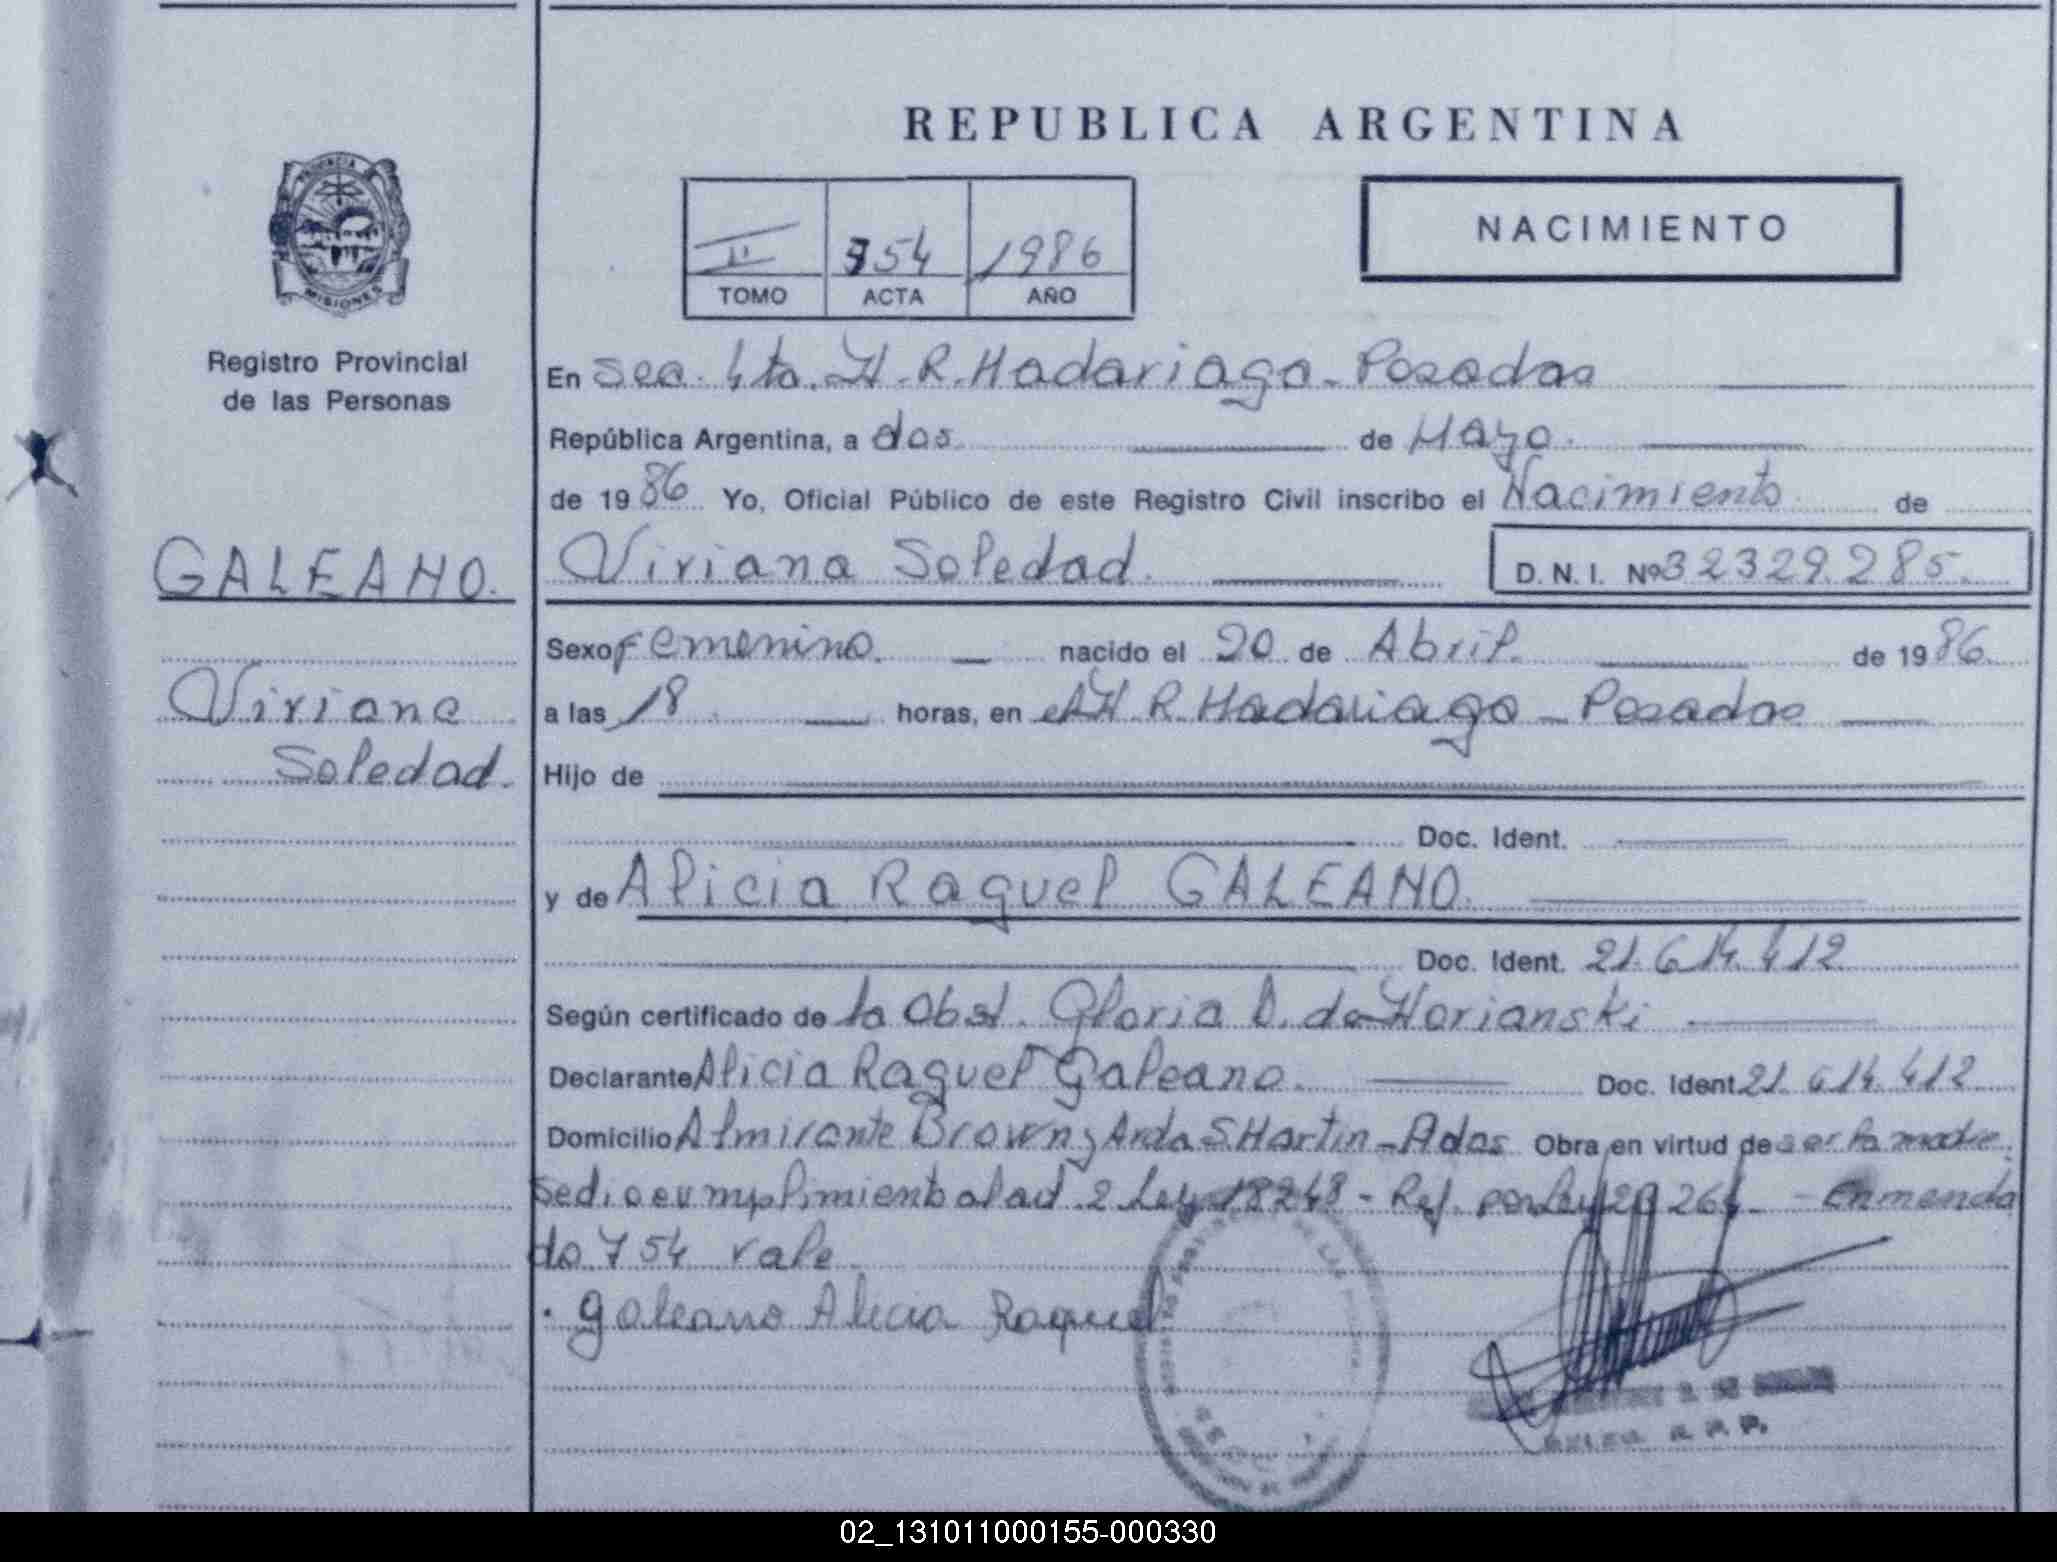 REPUBLICA ARGENTINA
II 754 1986
TOMO ACTA AÑO
NACIMIENTO
PROVINCIA
MISIONES
Registro Provincial
de las Personas
GALEANO.
Viviana
Soledad.
En Sec. 4ta. H. R. Madariaga - Posadas
República Argentina, a dos de Mayo.
de 1986 Yo, Oficial Público de este Registro Civil inscribo el Nacimiento de
Viviana Soledad. D. N. I. Nº 32329.285.
Sexo Femenino. nacido el 20 de Abril. de 1986.
a las 18 horas, en el H R. Madariaga - Posadas
Hijo de
Doc. Ident.
y de Alicia Raquel GALEANO.
Doc. Ident. 21.614.412
Según certificado de la Obst. Gloria D. de Horianski
Declarante Alicia Raquel Galeano. Doc. Ident 21.614.412
Domicilio Almirante Brown y Avda S. Martin - Pdas Obra en virtud de ser la madre.
Se dio cumplimiento al art. 2 Ley 18248 - Ref. por Ley 23264 - Enmenda
do 754 vale.
Galeano Alicia Raquel
R. P. P.
02_131011000155-000330